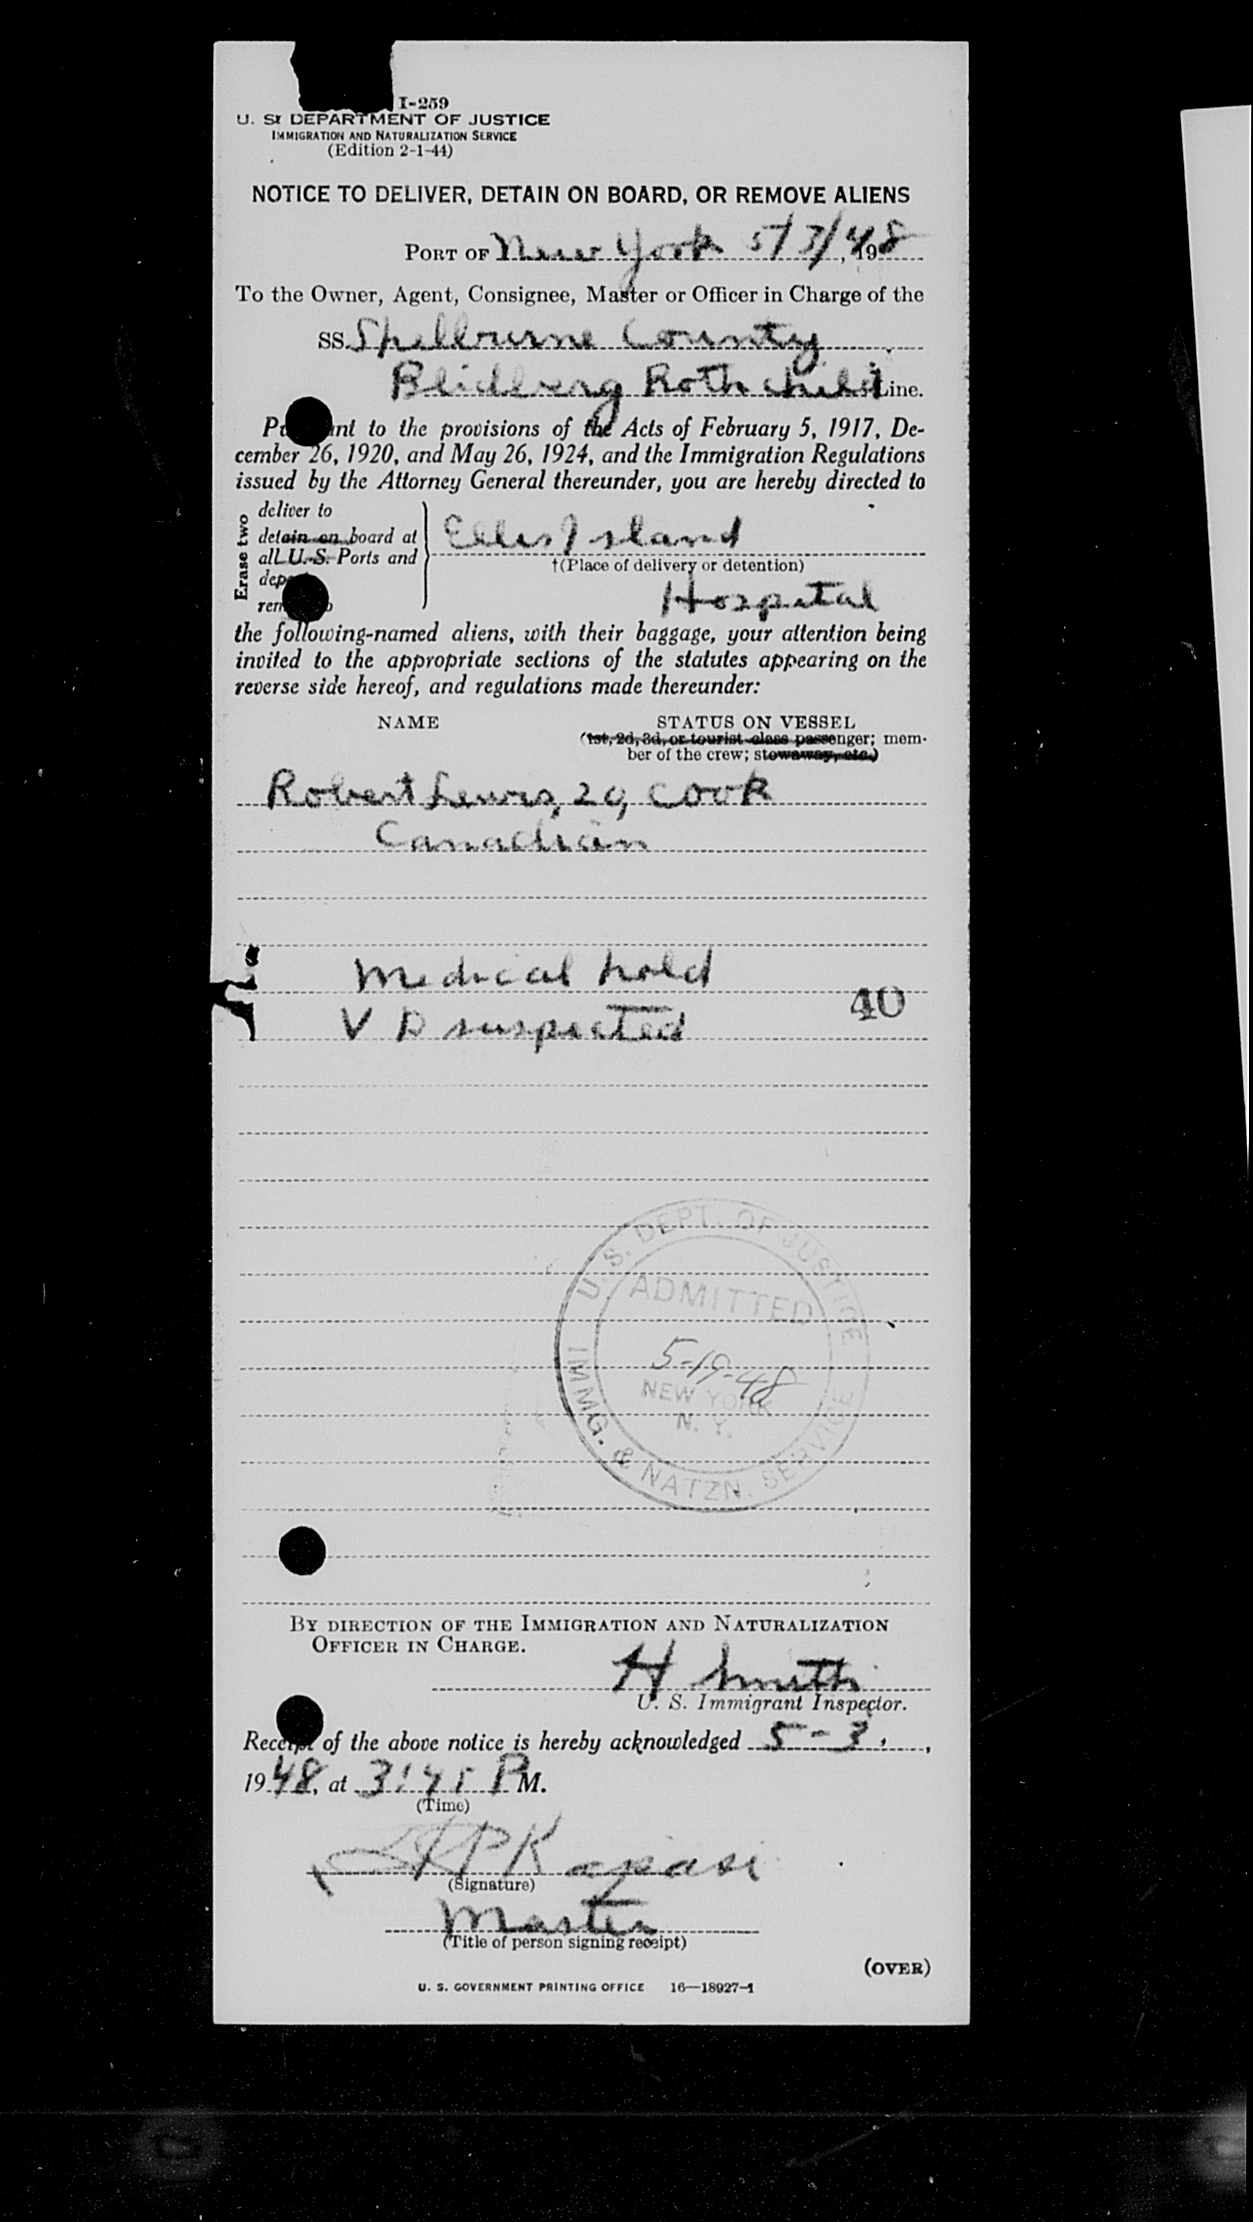 I-259
U. S. DEPARTMENT OF JUSTICE
IMMIGRATION AND NATURALIZATION SERVICE
(Edition 2-1-44)
NOTICE TO DELIVER, DETAIN ON BOARD, OR REMOVE ALIENS
PORT OF New York 5/3/48, 198
To the Owner, Agent, Consignee, Master or Officer in Charge of the
SS. Shelburne County
Blidberg Rothchild Line.
Pursuant to the provisions of the Acts of February 5, 1917, De-
cember 26, 1920, and May 26, 1924, and the Immigration Regulations
issued by the Attorney General thereunder, you are hereby directed to
Erase two
deliver to
detain on board at
all U.S. Ports and
Ellis Island
†(Place of delivery or detention)
Hospital
the following-named aliens, with their baggage, your attention being
invited to the appropriate sections of the statutes appearing on the
reverse side hereof, and regulations made thereunder:
NAME STATUS ON VESSEL
(1st, 2d, 3d, or tourist class passenger; mem-
ber of the crew; stowaway, etc.)
Robert Lewis, 29, cook
Canadian
Medical hold
V D suspected
40
U. S. DEPT. OF JUSTICE
ADMITTED
5-19-48
NEW YORK
N. Y.
IMMG. & NATZN. SERVICE
BY DIRECTION OF THE IMMIGRATION AND NATURALIZATION
OFFICER IN CHARGE.
H Smith
U. S. Immigrant Inspector.
Receipt of the above notice is hereby acknowledged 5-3,
1948, at 3:45 PM.
(Time)
(Signature)
Master
(Title of person signing receipt)
(OVER)
U. S. GOVERNMENT PRINTING OFFICE 16—18927-1